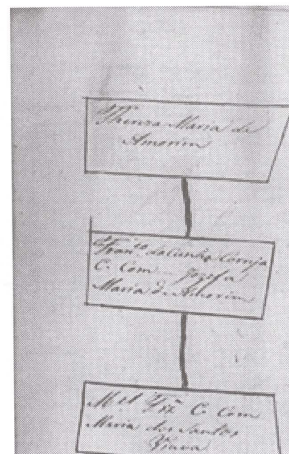 Thereza Maria de
Amorim
Fran.co da Cunha Corrêa
C. Com Jozefa
Maria d. Amorim
M.el C. Com
Maria dos Santos